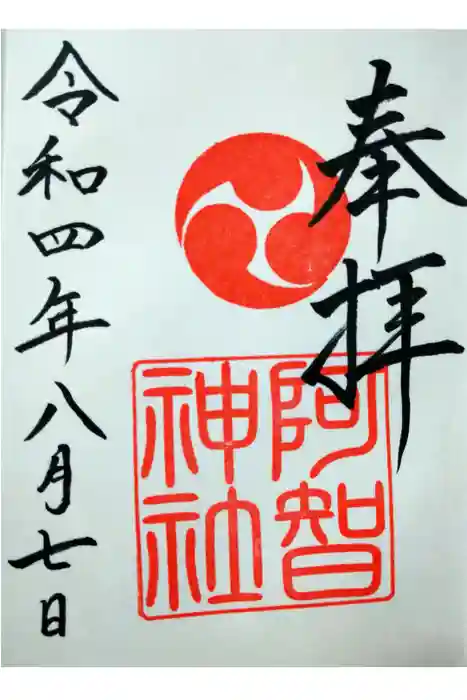 奉拝
阿智
神社
令和四年八月七日